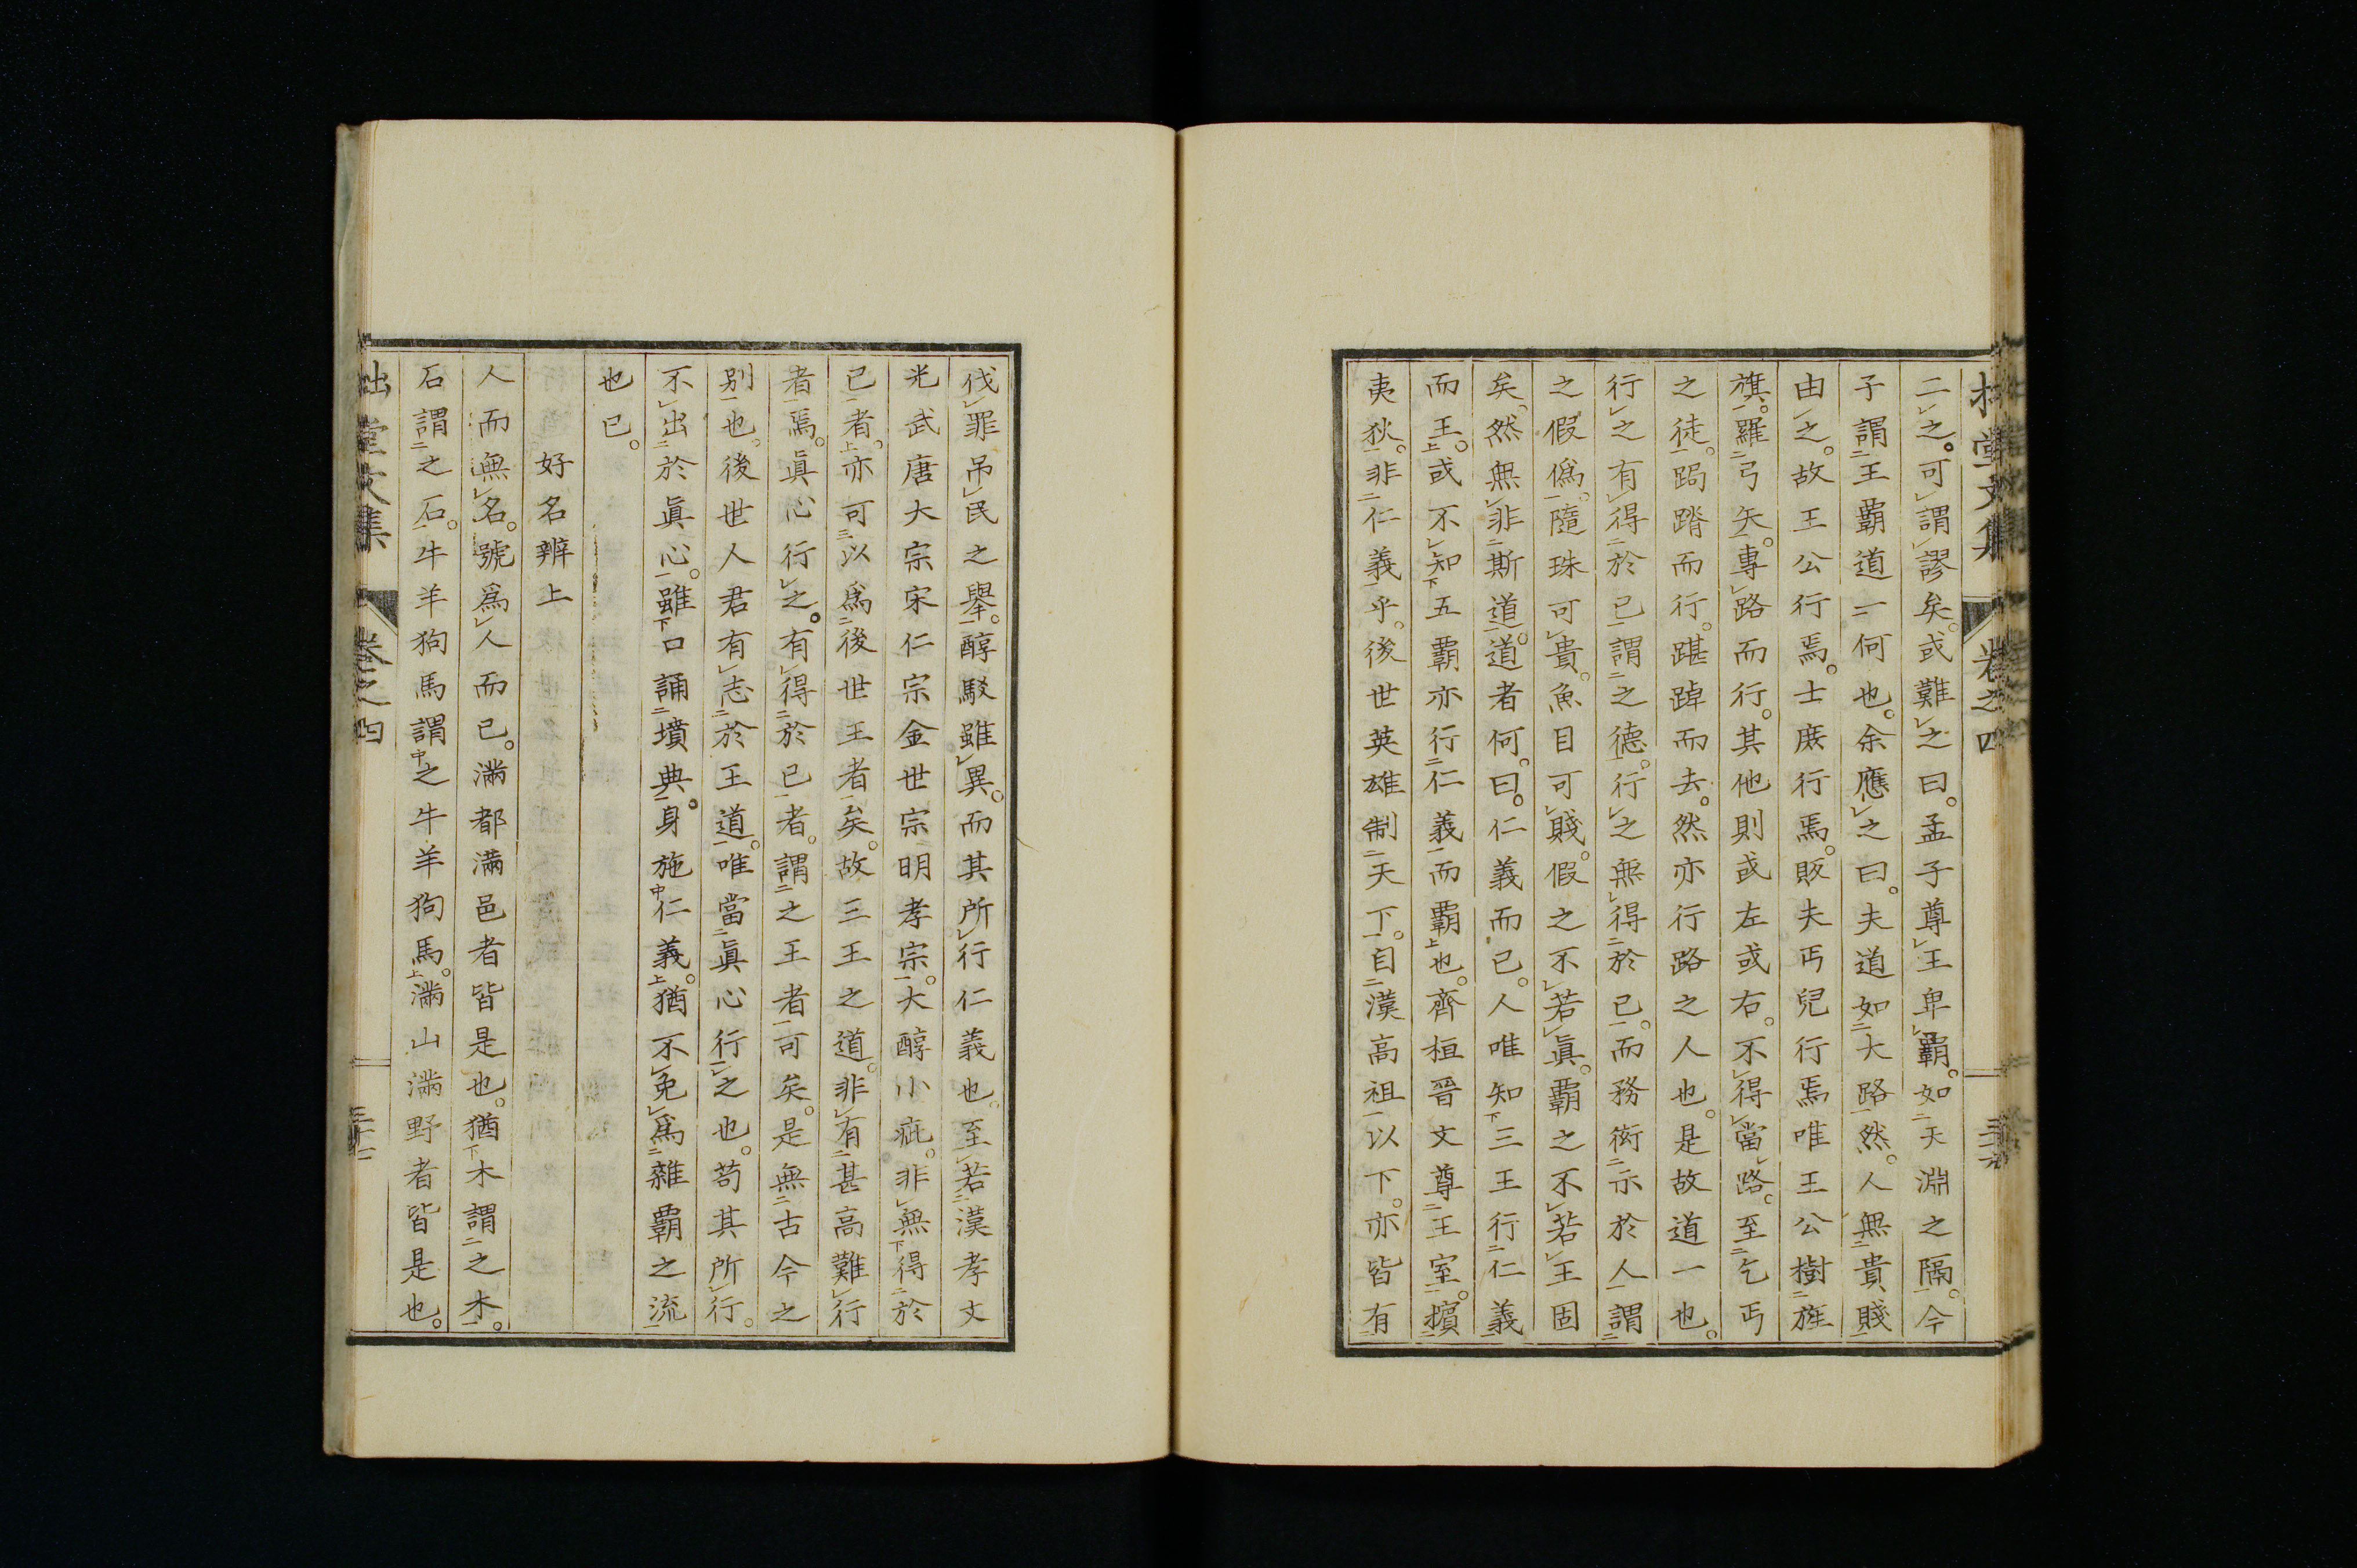 拙堂文集 卷之四 三十六
二之。可謂謬矣。或難之曰。孟子尊王卑霸。如天淵之隔。今
子謂王霸道一何也。余應之曰。夫道如大路然。人無貴賤
由之。故王公行焉。士庶行焉。販夫丐兒行焉唯王公樹旌
旗。羅弓矢。專路而行。其他則或左或右。不得當路。至乞丐
之徒。跼蹐而行。踸踔而去。然亦行路之人也。是故道一也。
行之有得於己謂之德。行之無得於己。而務衒示於人謂
之假僞。隨珠可貴。魚目可賤。假之不若眞。霸之不若王固
矣。然無非斯道。道者何。曰。仁義而已。人唯知三王行仁義
而王。或不知五霸亦行仁義而霸也。齊桓晉文尊王室。擯
夷狄。非仁義乎。後世英雄制天下。自漢高祖以下。亦皆有
伐罪吊民之擧。醇駁雖異。而其所行仁義也。至若漢孝文
光武唐大宗宋仁宗金世宗明孝宗。大醇小疵。非無得於
已者。亦可以爲後世王者矣。故三王之道。非有甚高難行
者焉。眞心行之。有得於已者。謂之王者可矣。是無古今之
別也。後世人君有志於王道。唯當眞心行之也。苟其所行。
不出於眞心。雖口誦墳典。身施仁義。猶不免爲雜霸之流
也已。
好名辨上
人而無名。號爲人而已。滿都滿邑者皆是也。猶木謂之木。
石謂之石。牛羊狗馬謂之牛羊狗馬。滿山滿野者皆是也。
拙堂文集 卷之四